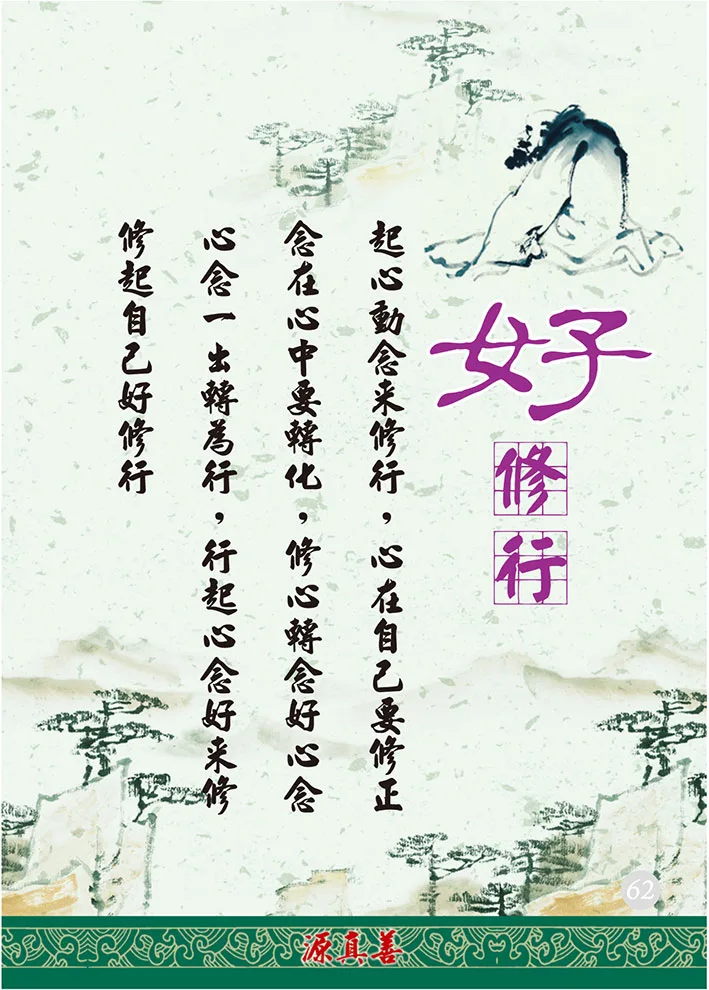 好
修行
起心動念来修行，心在自己要修正
念在心中要轉化，修心轉念好心念
心念一出轉為行，行起心念好来修
修起自己好修行
62
源真善